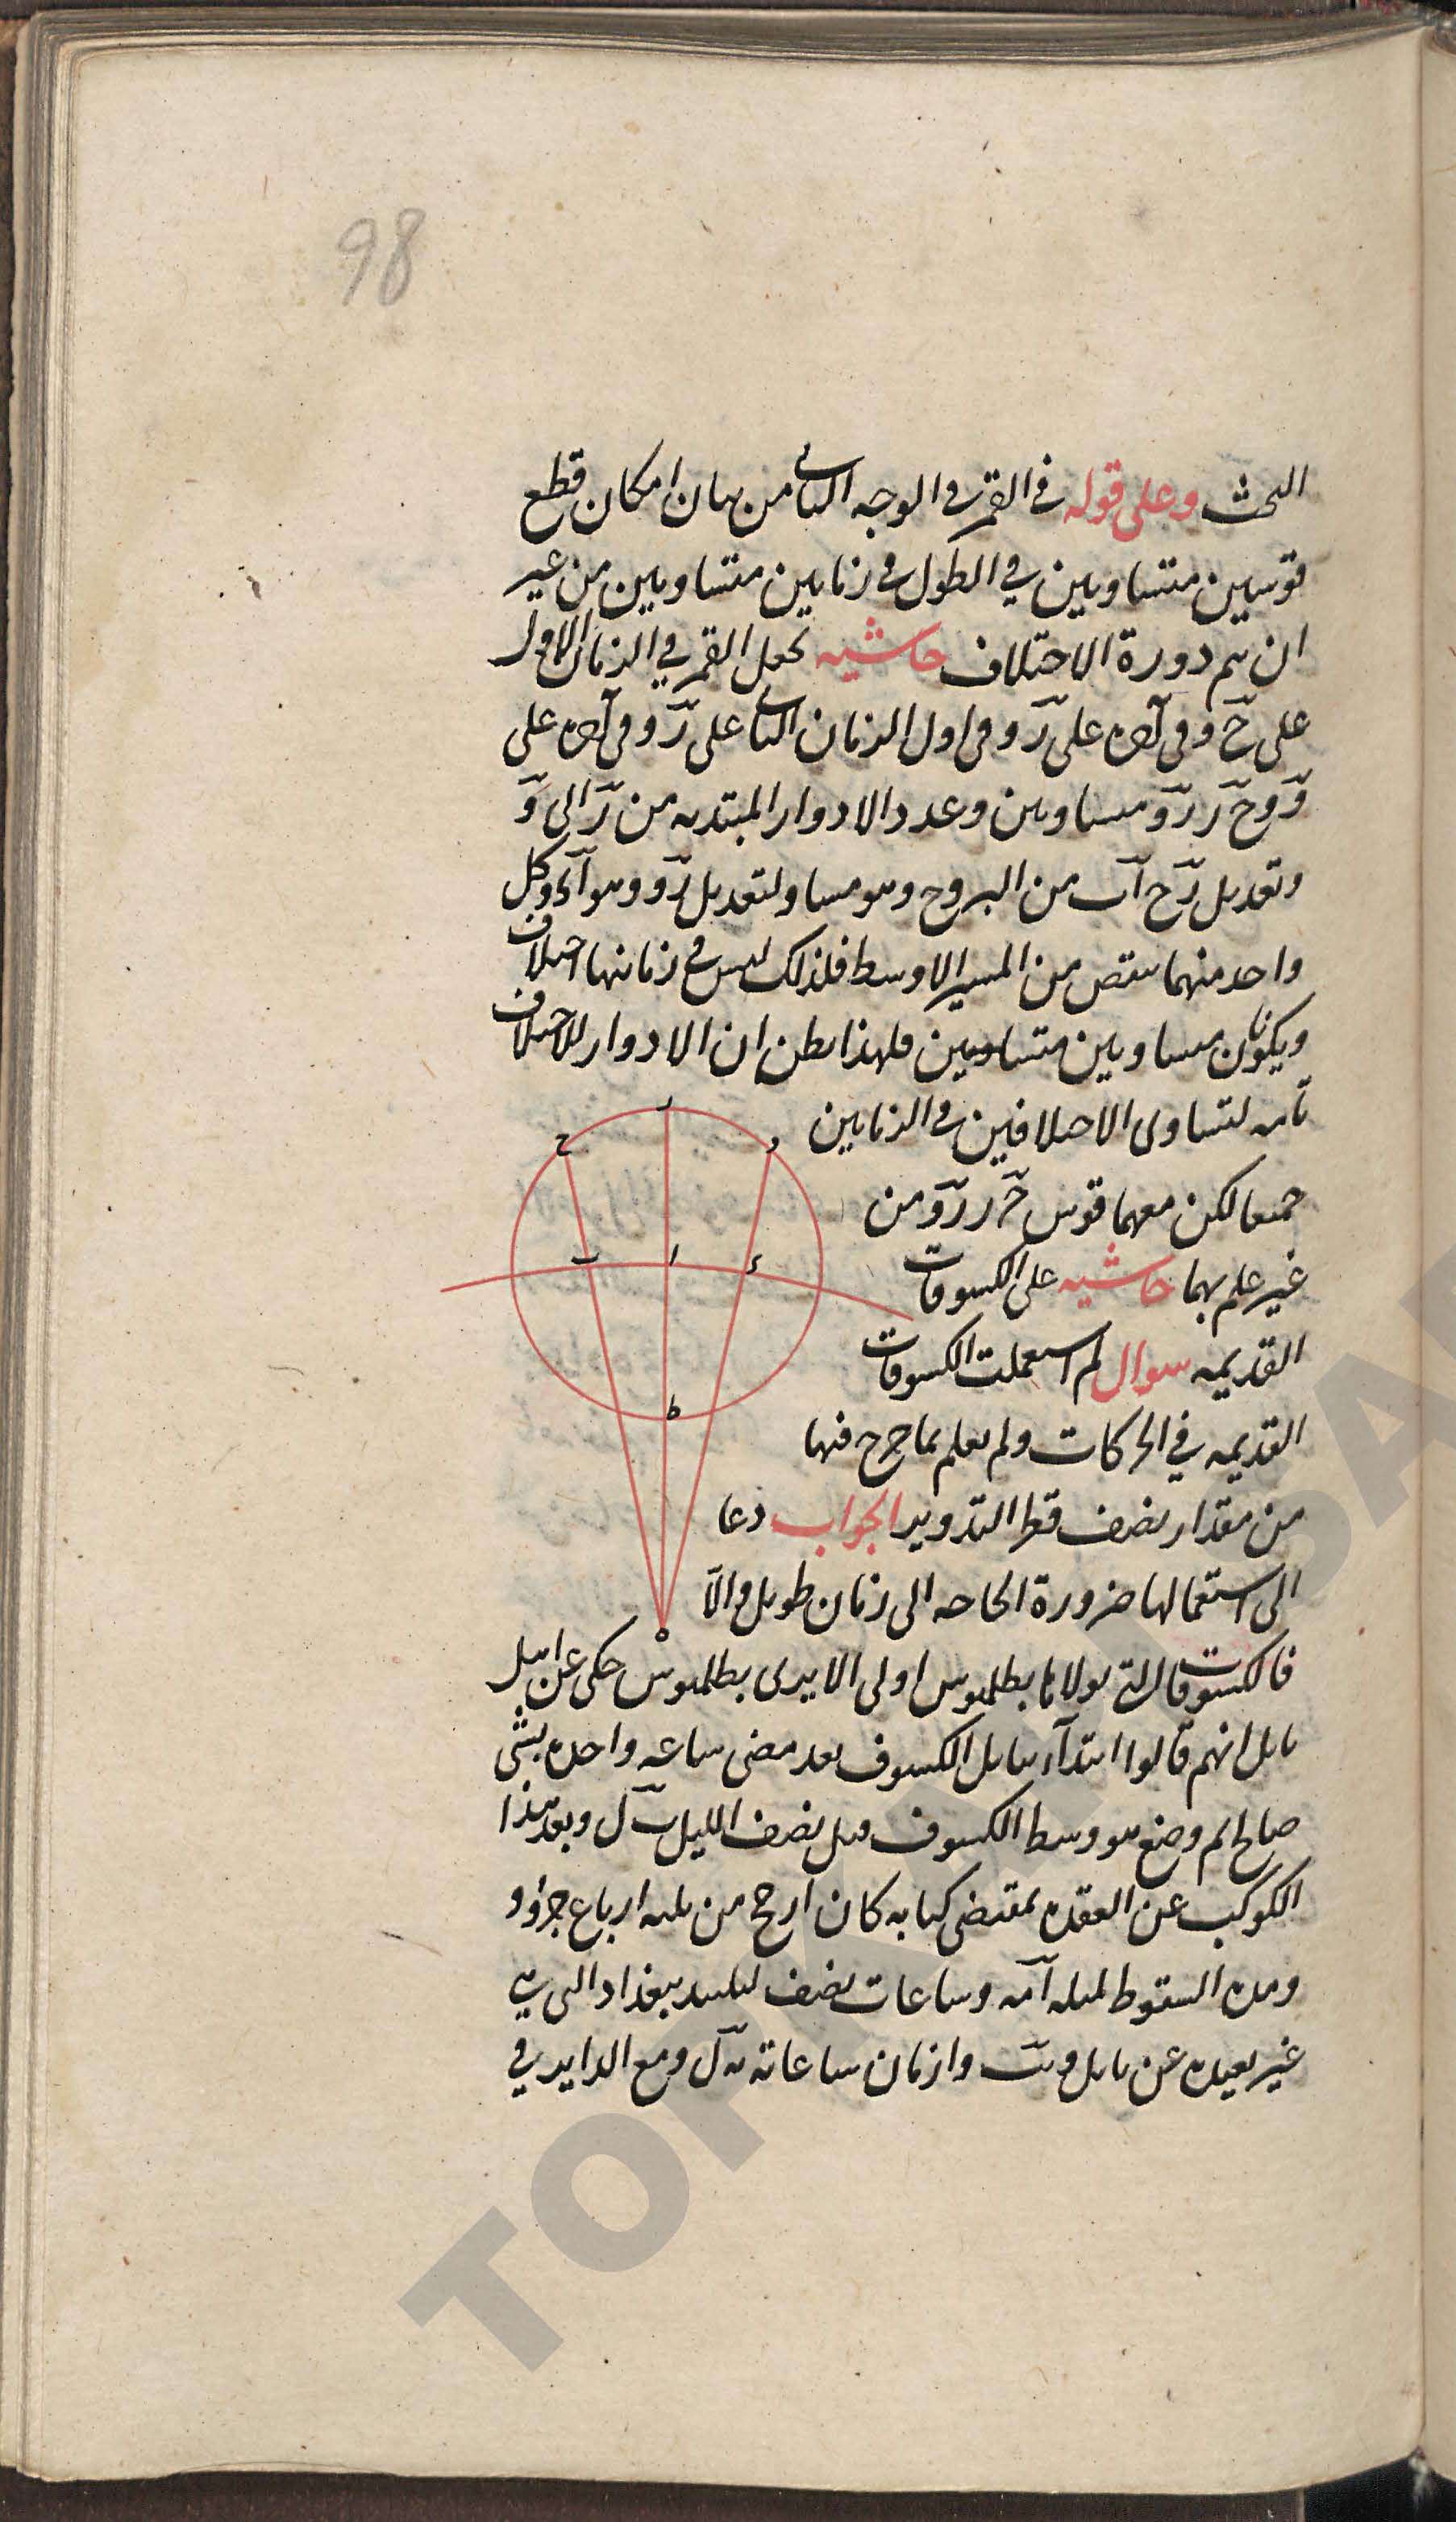 98
البحث وعلى قوله في القمر في الوجه الثاني من بيان امكان قطع
قوسين متساويين في الطول في زمانين متساويين من غير
ان يتم دورة الاختلاف حاشيه نجعل القمر في الزمان الاول
على ح وفي آخره على ر وفي اول الزمان الثاني على ر وفي آخره على
و وح ر ر و متساويين وعدد الادوار المبتديه من ر الى و
وتعديل ر ح ا ب من البروج وهو مساو لتعديل ر و وهو ا ء وكل
واحد منهما ينقص من المسير الاوسط فلذلك ليس في زمانيهما اختلاف
ويكونان متساويين متساويين فلهذا يظن ان الادوار للاختلاف
تامه لتساوي الاختلافين في الزمانين
جميعا لكن معهما قوس ح ر ر و من
غير علم بهما حاشيه على الكسوفات
القديمه سوال لم استعملت الكسوفات
القديمه في الحركات ولم يعلم بما خرج فيها
من مقدار نصف قطر التدوير الجواب دعا
الى استعمالها ضرورة الحاجه الى زمان طويل والا
فالكسوفات التي تولاها بطلميوس اولى الا يرى بطلميوس حكى عن اهل
بابل انهم قالوا ابتدآء ببابل الكسوف بعد مضي ساعه واحده بشي
صالح ثم وضع هو وسط الكسوف قبل نصف الليل ب ل وبعد هذا
الكوكب عن العقده بمقتضى كتابه كان ارجح من ثلثه ارباع جزؤ و
ومده السقوط لميله وساعات نصف ليلته ببغداد التي هي
غير بعيده عن بابل و وازمان ساعاته يه ل ومع الداير في
ر
ح
و
ب
ا
ء
ط
ه
TOPKAPI SARAYI